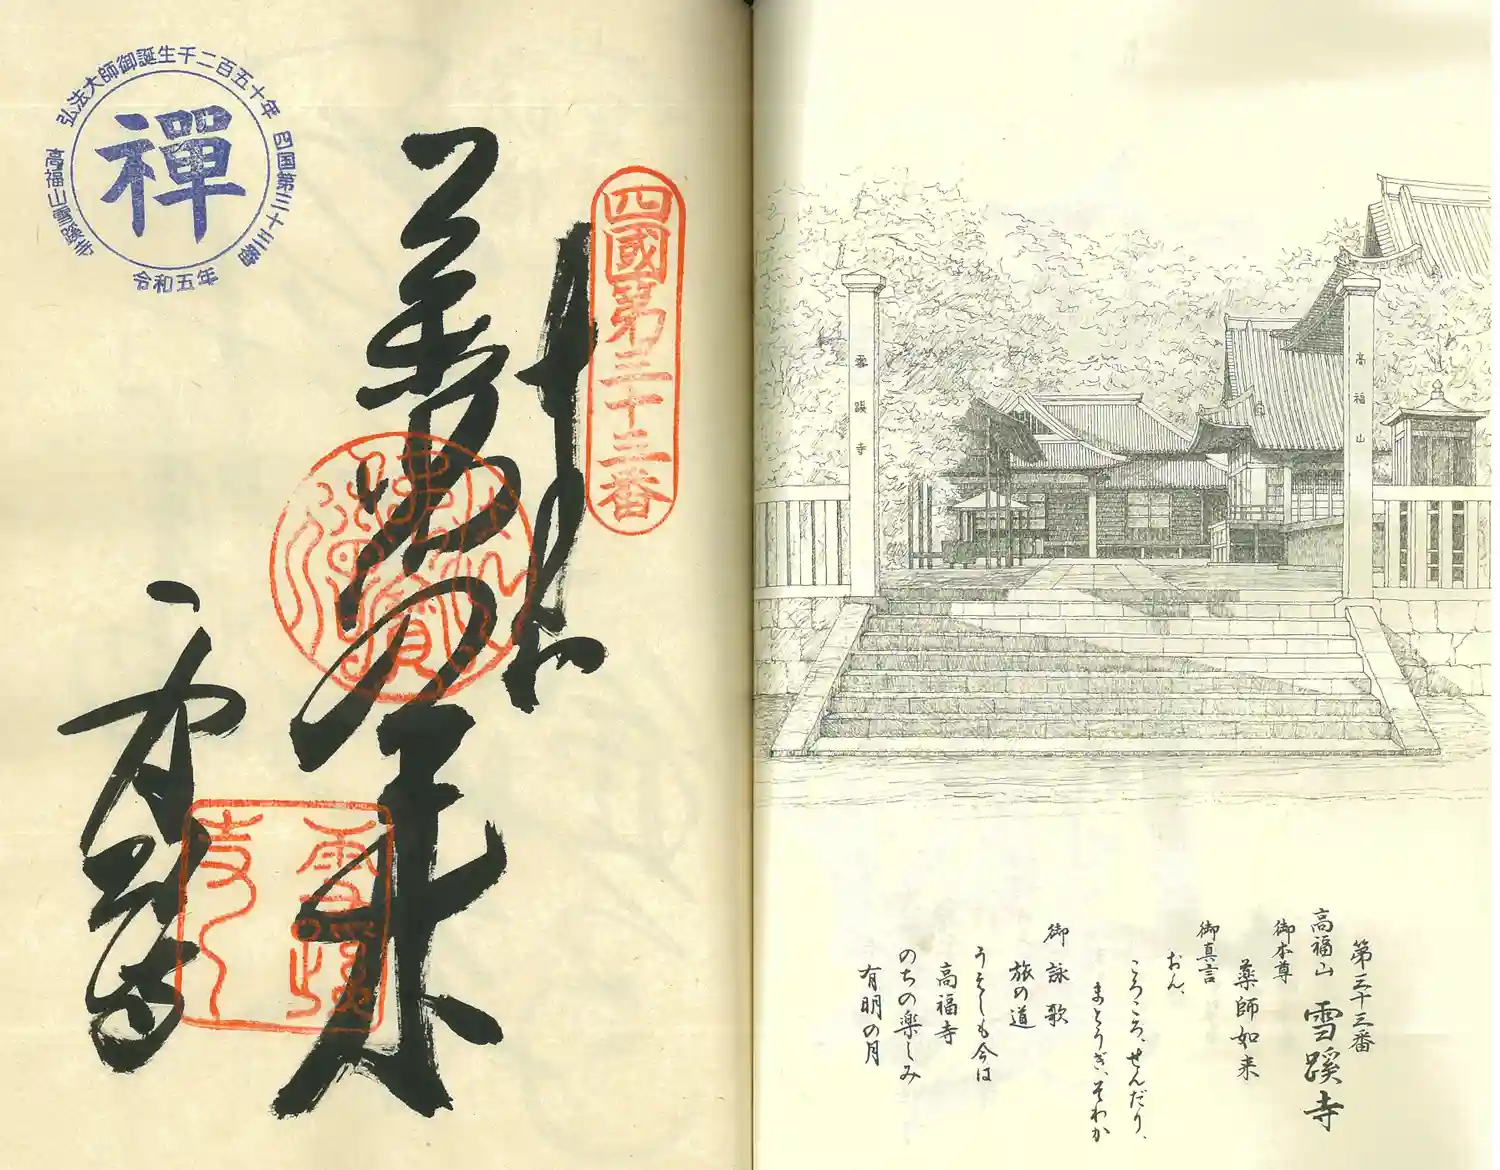 高福山
雪蹊寺
第三十三番
高福山 雪蹊寺
御本尊
薬師如来
御真言
おん、
ころころ、せんだり、
まとうぎ、そわか
御詠歌
旅の道
うえしも今は
高福寺
のちの楽しみ
有明の月
四國第三十三番
奉納
薬師如来
雪蹊寺
雪蹊寺
弘法大師御誕生千二百五十年
四国第三十三番
高福山雪蹊寺
禅
令和五年